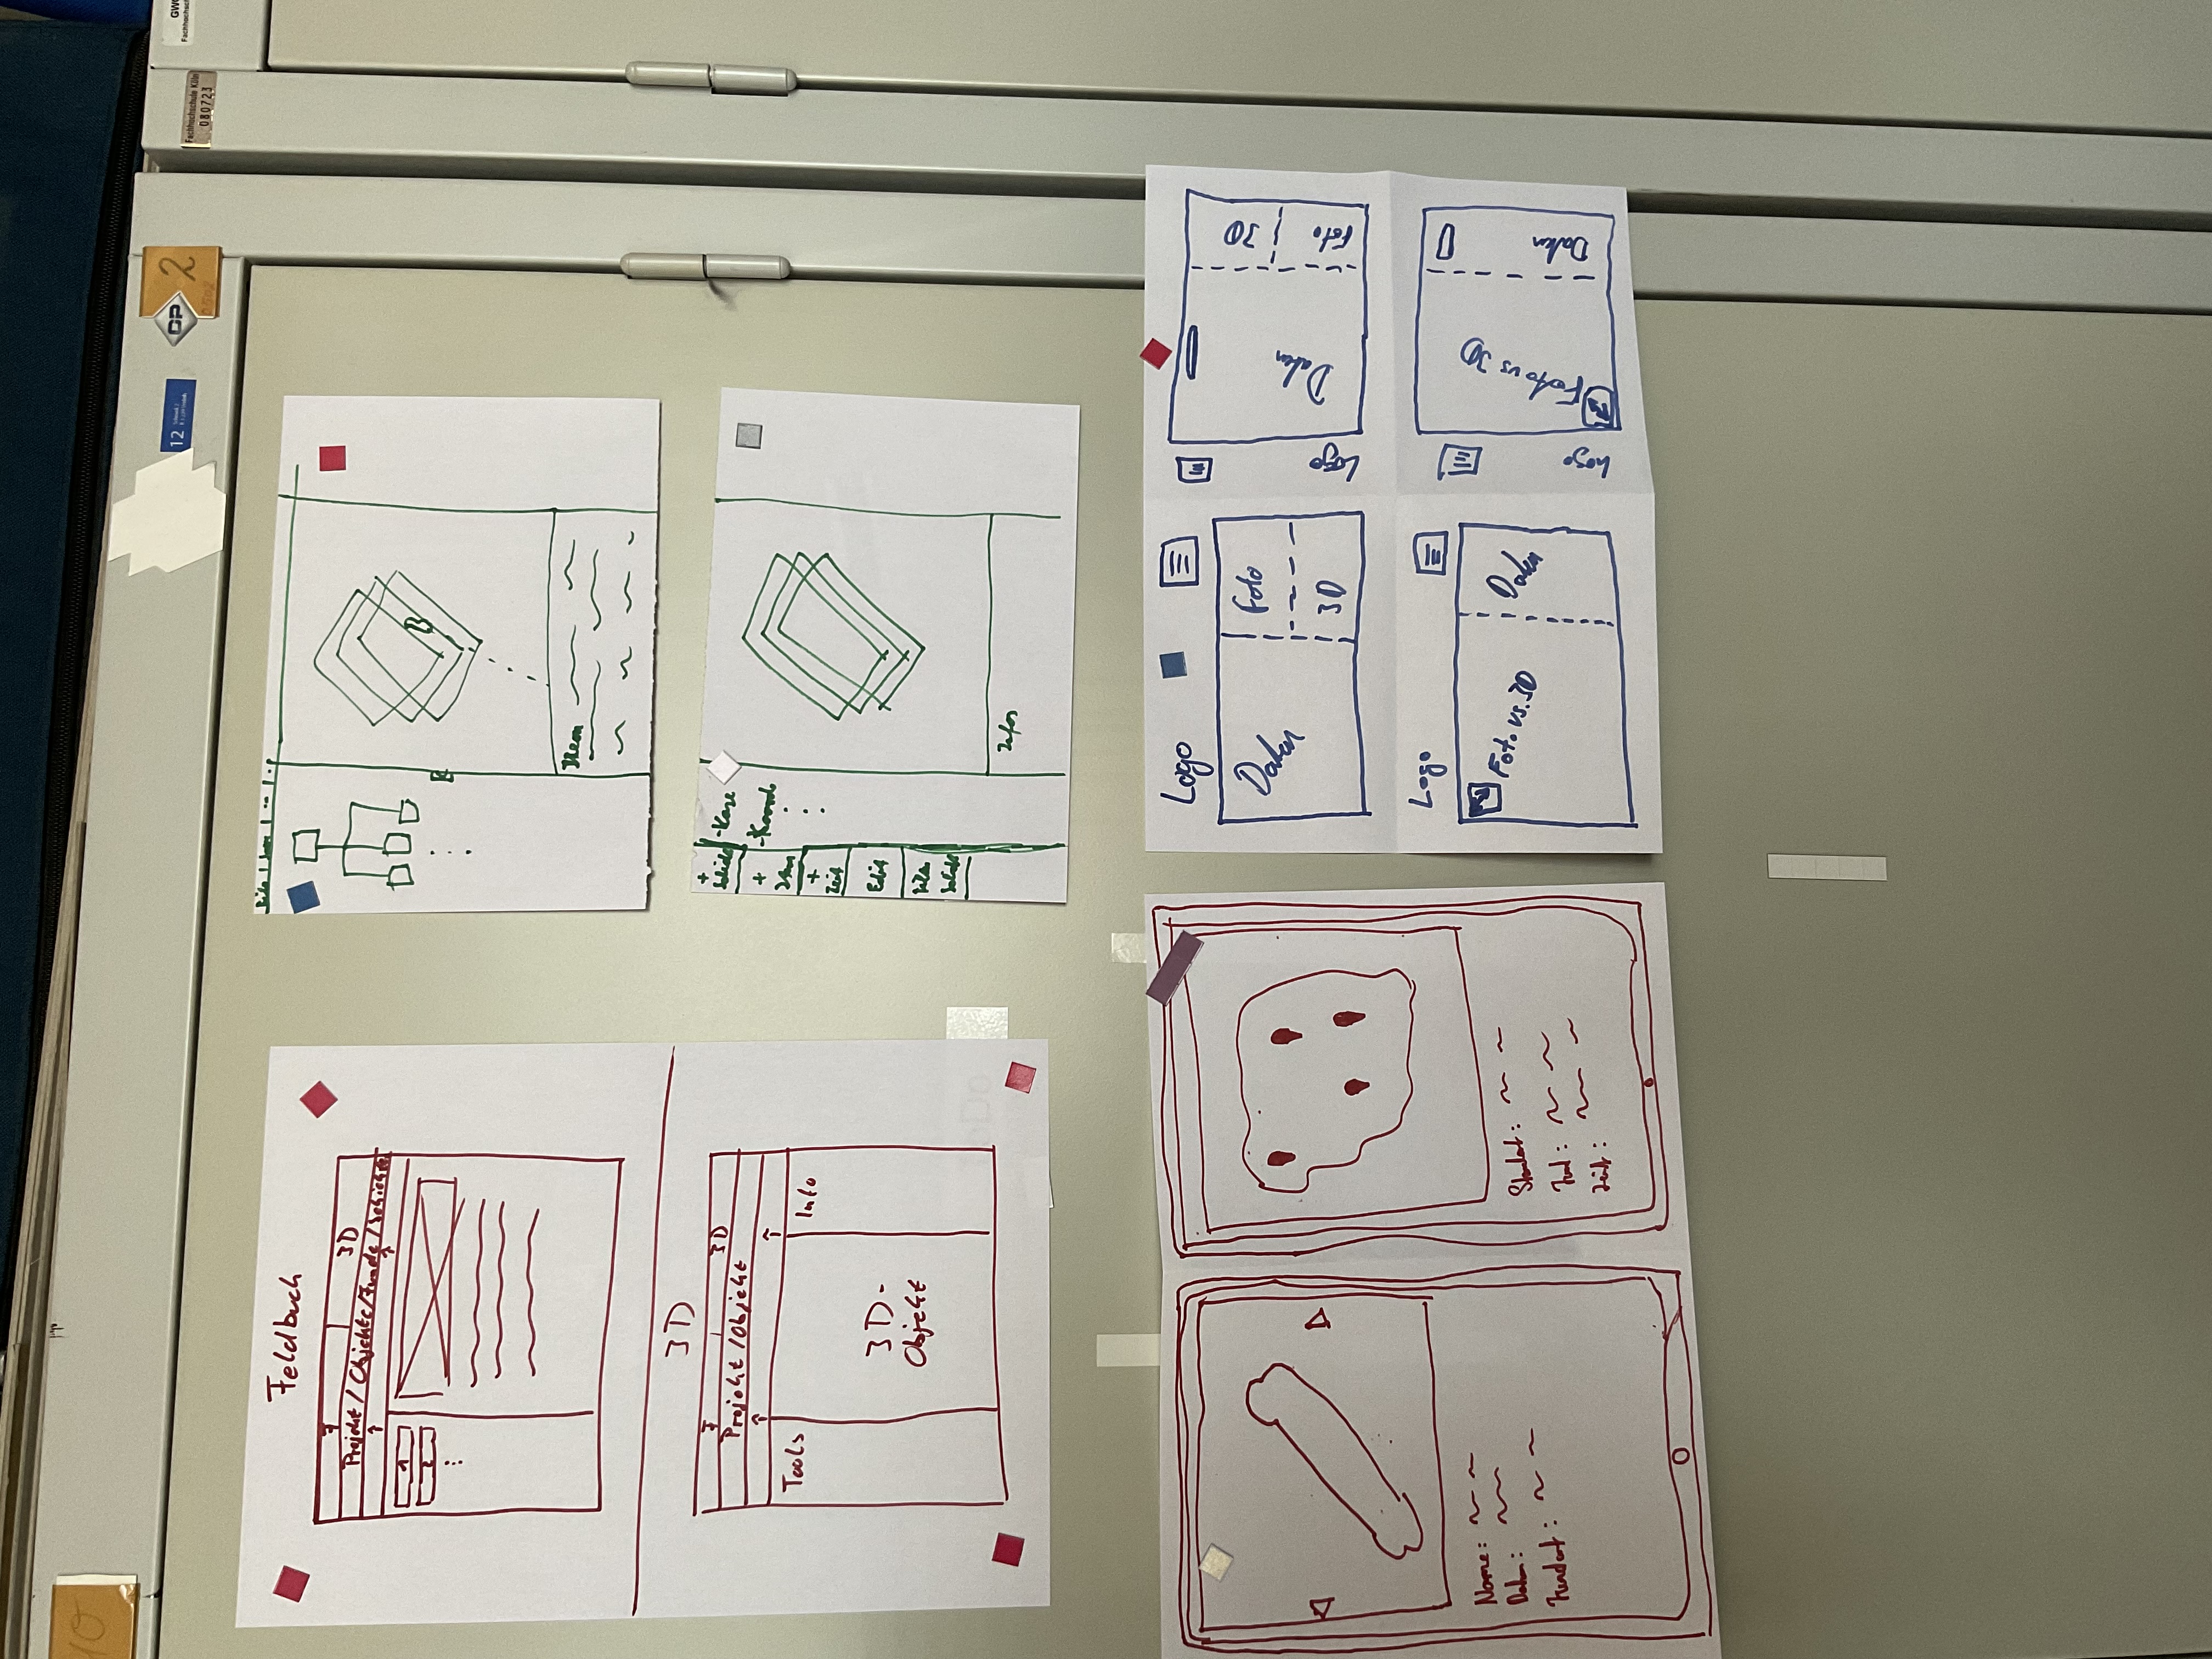 10
12
DP
2
Fachhochschule Köln
080723
GWO
Feldbuch
F
3D
Projekt / Objekte / Funde / Schichten
1
2
3D
F
3D
Projekt / Objekt
Tools
Info
3D-
Objekt
B
+
Schicht
-Kare
+
-Koord
+
Zeit
Edit
Infos
Name: 
Daten:
Fundort:
Standort:
Fund:
Zeit:
Logo
Daten
Foto
3D
Logo
Daten
Foto
3D
Logo
Foto vs. 3D
Daten
Logo
Foto vs 3D
Daten